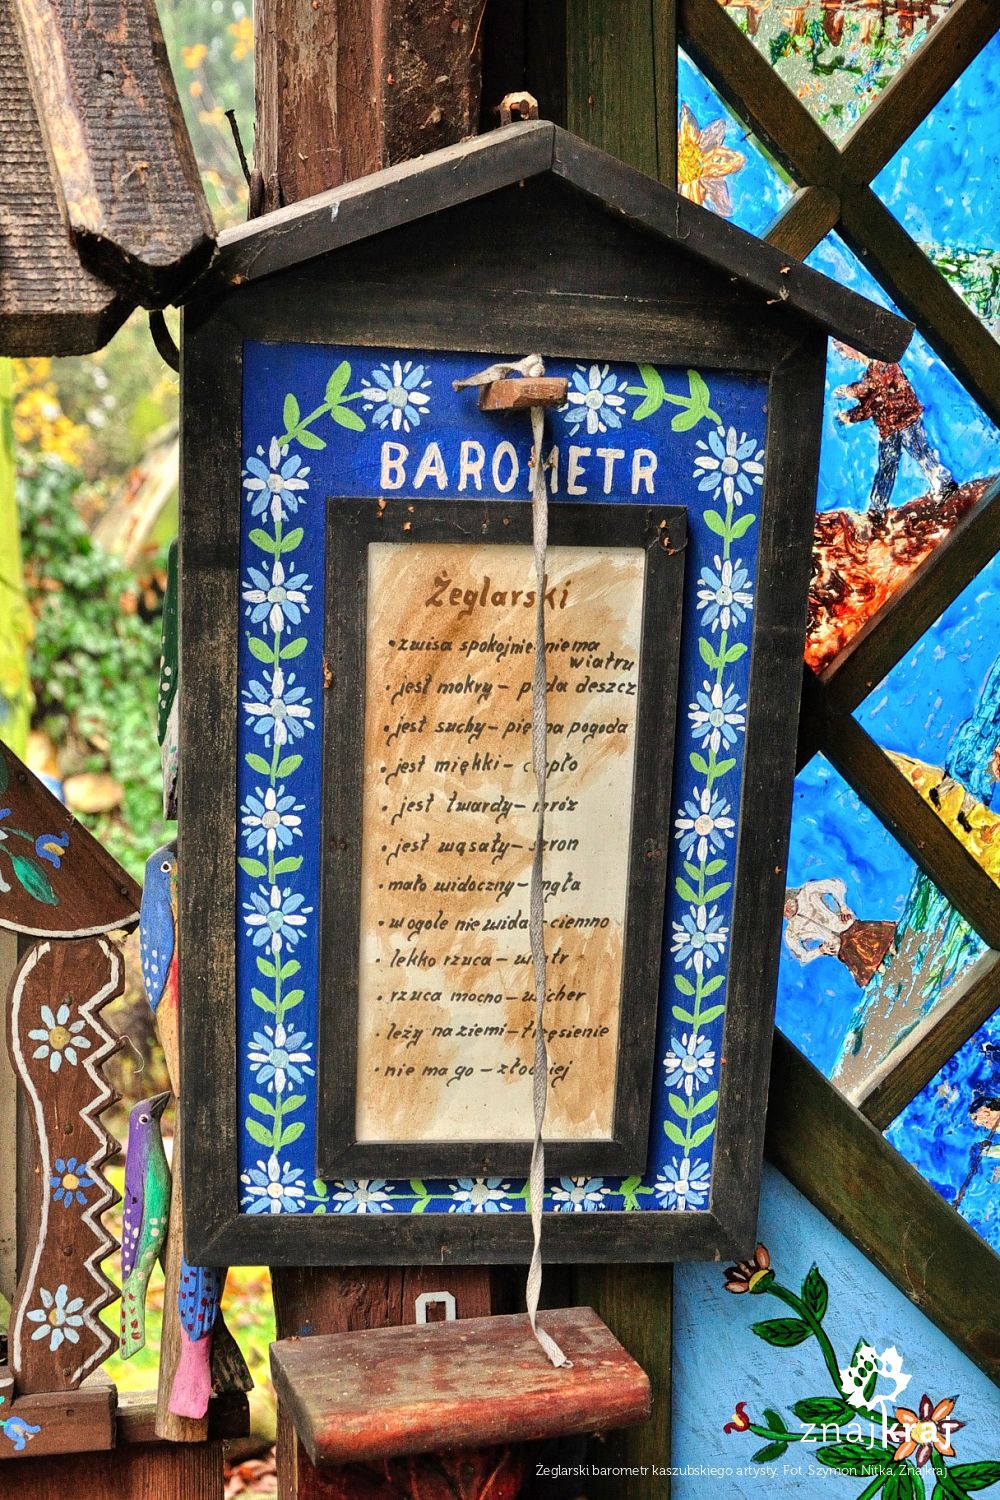 BAROMETR
Żeglarski
• zwisa spokojnie niema
wiatru
• jest mokry – pada deszcz
• jest suchy – piękna pogoda
• jest miękki – ciepło
• jest twardy – mróz
• jest wąsaty – szron
• mało widoczny – mgła
• wogole nie widać – ciemno
• lekko rzuca – wiatr
• rzuca mocno – wicher
• leży na ziemi – trzęsienie
• nie ma go – złodziej
znajkraj
Żeglarski barometr kaszubskiego artysty. Fot. Szymon Nitka, Znajkraj